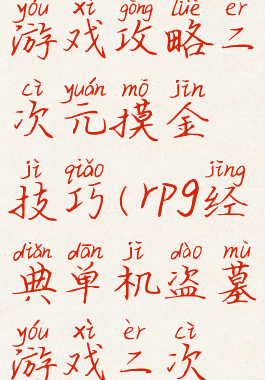 yóu xì gōng lüè èr
游戏攻略二
cì yuán mō jīn
次元摸金
jì qiǎo jīng
技巧(rpg经
diǎn dān jī dào mù
典单机盗墓
yóu xì èr cì
游戏二次